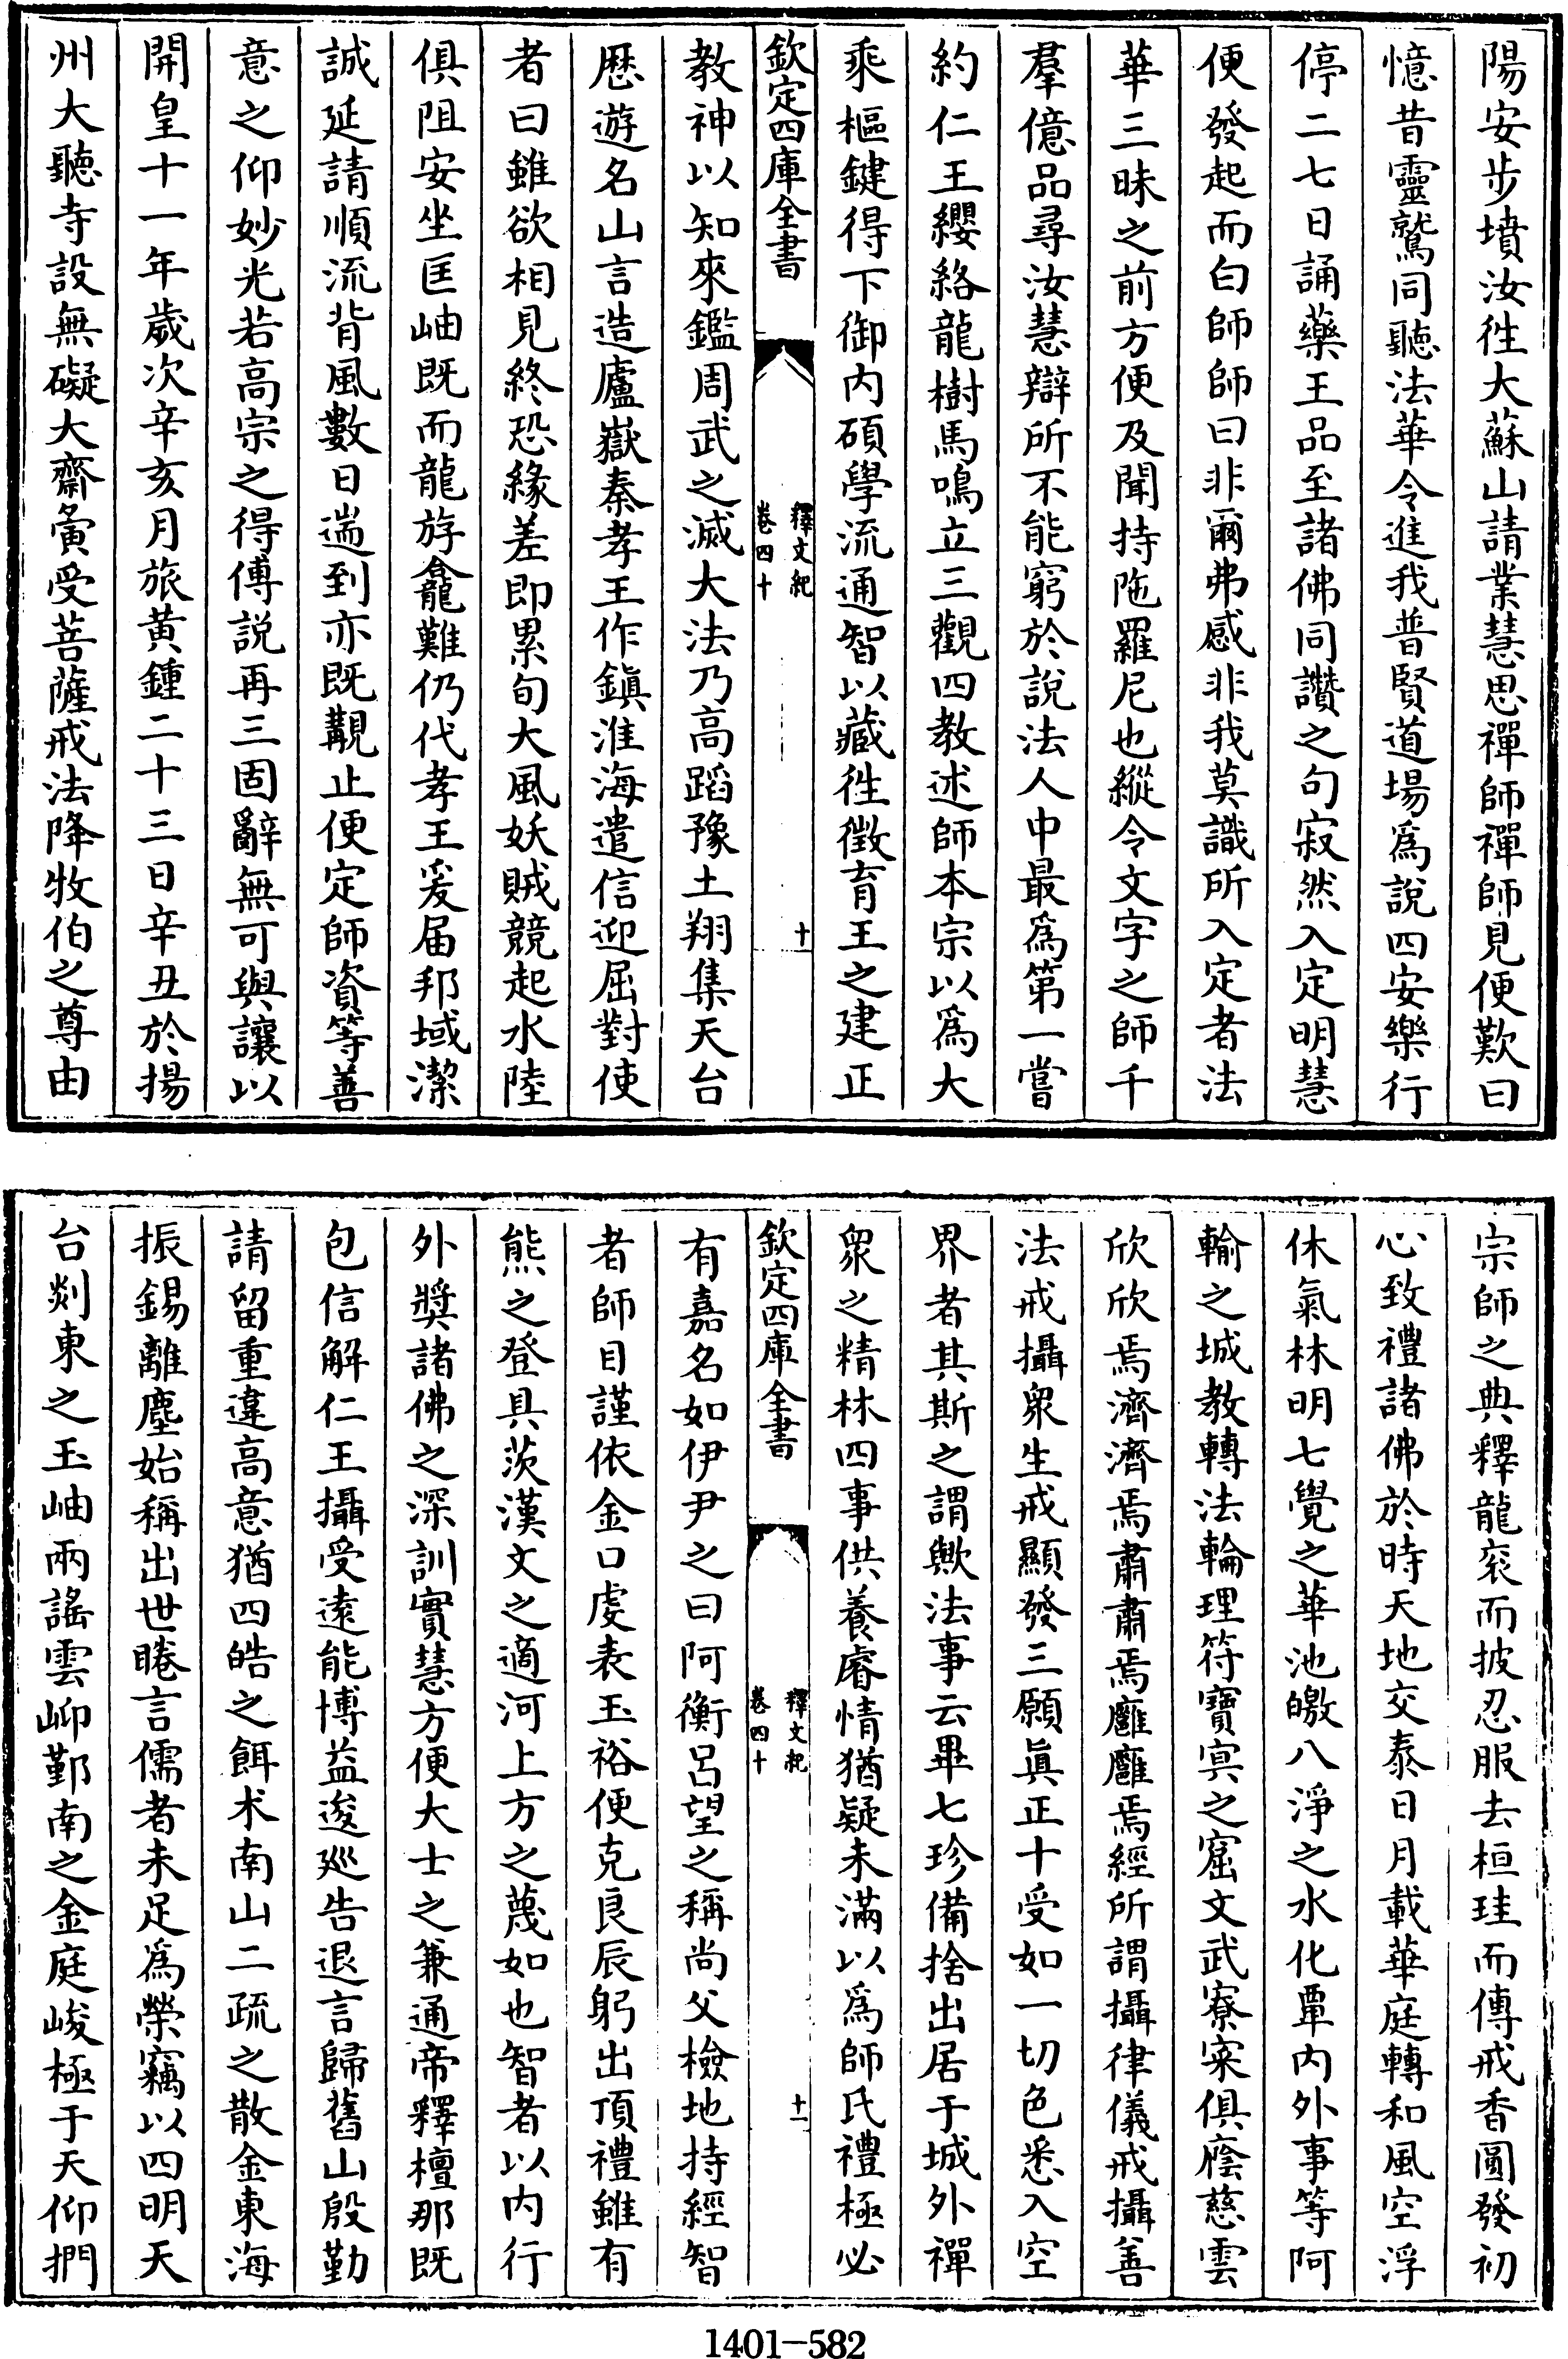 陽安步墳汝徃大蘇山請業慧思禪師禪師見便歎曰
憶昔靈鷲同聽法華令進我普賢道場為説四安樂行
停二七日誦藥王品至諸佛同讚之句寂然入定明慧
便發起而白師師曰非爾弗感非我莫識所入定者法
華三昧之前方便及聞持陁羅尼也縱令文字之師千
羣億品尋汝慧辯所不能窮於說法人中最為第一嘗
約仁王纓絡龍樹馬鳴立三觀四教述師本宗以為大
乘樞鍵得下御內碩學流通智以藏徃徴育王之建正
欽定四庫全書
釋文紀
卷四十
十
教神以知來鑑周武之滅大法乃高蹈豫土翔集天台
厯遊名山言造廬嶽秦孝王作鎮淮海遣信迎屈對使
者曰雖欲相見終恐緣差即累旬大風妖賊競起水陸
俱阻安坐匡岫既而龍斿龕難仍代孝王爰届邦域潔
誠延請順流背風數日遄到亦既覯止便定師資等善
意之仰妙光若高宗之得傅説再三固辭無可與讓以
開皇十一年歲次辛亥月旅黄鍾二十三日辛丑於揚
州大聽寺設無礙大齋夤受菩薩戒法降牧伯之尊由
宗師之典釋龍衮而披忍服去桓珪而傳戒香圓發初
心致禮諸佛於時天地交泰日月載華庭轉和風空浮
休氣林明七覺之華池皦八淨之水化覃內外事等阿
輸之城教轉法輪理符寶冥之窟文武寮寀俱䕃慈雲
欣欣焉濟濟焉肅肅焉廱廱焉經所謂攝律儀戒攝善
法戒攝衆生戒顯發三願眞正十受如一切色悉入空
界者其斯之謂歟法事云畢七珍備捨出居于城外禪
衆之精林四事供養睿情猶疑未滿以為師氏禮極必
欽定四庫全書
釋文紀
卷四十
十一
有嘉名如伊尹之曰阿衡呂望之稱尚父檢地持經智
者師目謹依金口虔表玉裕便克良辰躬出頂禮雖有
熊之登具茨漢文之適河上方之蔑如也智者以內行
外奬諸佛之深訓實慧方便大士之兼通帝釋檀那既
包信解仁王攝受遠能博益逡廵告退言歸舊山殷勤
請留重違高意猶四皓之餌术南山二疏之散金東海
振錫離塵始稱出世睠言儒者未足為榮竊以四明天
台剡東之玉岫兩謡雲峁鄞南之金庭峻極于天仰捫
1401-582